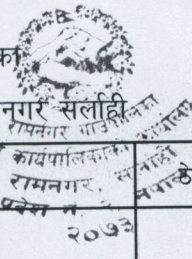 का
नगर सर्लाही
रामनगर गाउँपालिका
कार्यपालिकाको
रामनगर, सर्लाही
नेपाल
प्रदेश नं. २
२०७३